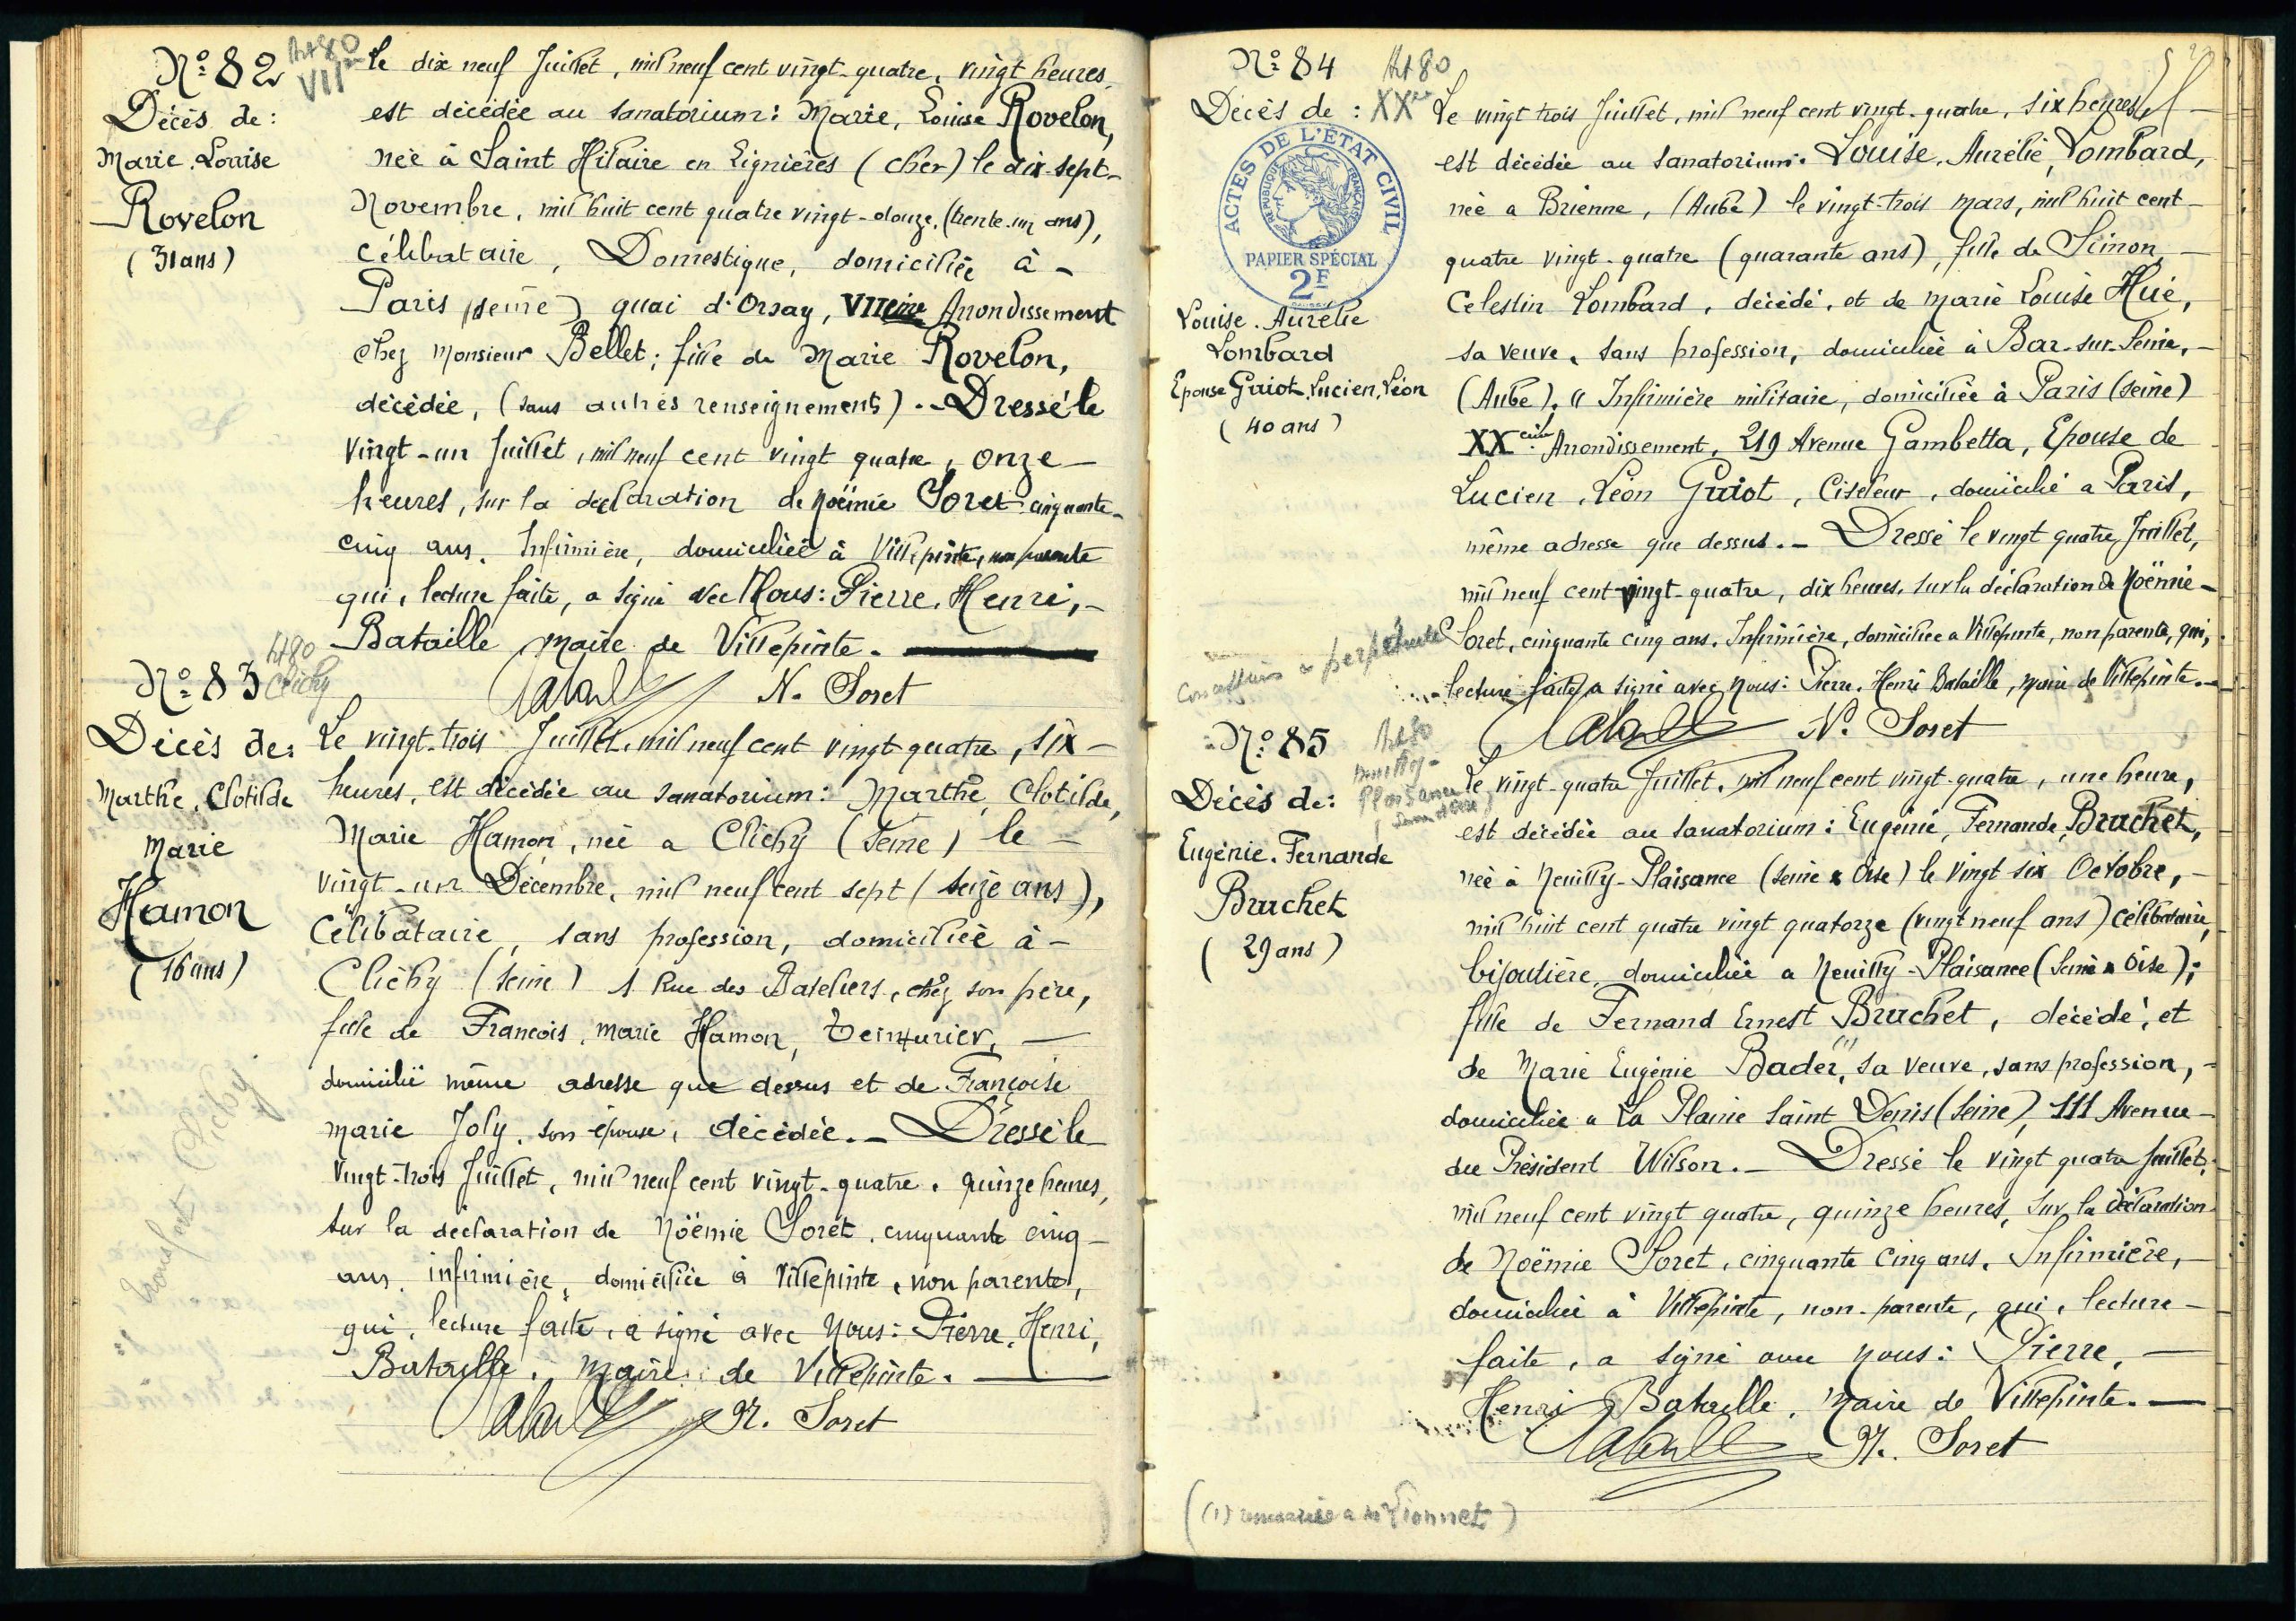 Nº 82
Art 80
VIIe
Décès de :
Marie, Louise
Rovelon
(31 ans)
Le dix neuf Juillet, mil neuf cent vingt-quatre, vingt heures
est décédée au sanatorium : Marie, Louise Rovelon,
née à Saint Hilaire en Lignières (Cher) le dix-sept-
Novembre, mil huit cent quatre vingt-douze, (trente-un ans),
célibataire, Domestique, domiciliée à -
Paris (Seine) quai d'Orsay, VIIeme Arrondissement
chez Monsieur Bellet ; fille de Marie Rovelon,
décédée, (sans autres renseignements). - Dressé le
vingt-un Juillet, mil neuf cent vingt quatre, onze -
heures, sur la déclaration de Noëmie Soret cinquante-
cinq ans. Infirmière, domiciliée à Villepinte, non parente
qui, lecture faite, a signé avec Nous : Pierre, Henri, -
Bataille Maire de Villepinte.
Bataille N. Soret
Nº 83
Art 80
Clichy
Décès de :
Marthe, Clotilde
Marie
Hamon
(16 ans)
Le vingt-trois Juillet, mil neuf cent vingt quatre, six -
heures, est décédée au sanatorium : Marthe, Clotilde,
Marie Hamon, née à Clichy (Seine) le -
vingt-un Décembre, mil neuf cent sept (seize ans),
Célibataire, sans profession, domiciliée à -
Clichy (Seine) 1 Rue des Bateliers, chez son père,
fille de François, Marie Hamon, teinturier, -
domicilié même adresse que dessus et de Françoise
Marie Joly, son épouse, décédée. - Dressé le
vingt-trois Juillet, mil neuf cent vingt-quatre, quinze heures,
sur la déclaration de Noëmie Soret, cinquante cinq -
ans, infirmière, domiciliée à Villepinte, non parente,
qui, lecture faite, a signé avec Nous : Pierre, Henri,
Bataille, Maire de Villepinte.
Bataille N. Soret
Transfert Clichy
Nº 84
Art 80
XXe
Décès de :
ACTES DE L'ÉTAT CIVIL
RÉPUBLIQUE FRANÇAISE
PAPIER SPÉCIAL
2F
Louise, Aurélie
Lombard
Epouse Guiot, Lucien, Léon
(40 ans)
Le vingt trois Juillet, mil neuf cent vingt-quatre, six heures -
est décédée au sanatorium : Louise, Aurélie, Lombard,
née à Brienne, (Aube) le vingt-trois mars, mil huit cent -
quatre vingt-quatre (quarante ans), fille de Simon, -
Celestin Lombard, décédé, et de Marie Louise Hué,
sa veuve, sans profession, domiciliée à Bar-sur-Seine, -
(Aube). " Infirmière militaire, domiciliée à Paris (Seine)
XXeme Arrondissement, 219 Avenue Gambetta, Epouse de
Lucien, Léon Guiot, Ciseleur, domicilié à Paris,
même adresse que dessus. - Dressé le vingt quatre Juillet,
mil neuf cent vingt-quatre, dix heures, sur la déclaration de Noëmie -
Soret, cinquante cinq ans, Infirmière, domiciliée à Villepinte, non parente, qui,
lecture faite, a signé avec Nous : Pierre, Henri Bataille, Maire de Villepinte. -
Bataille N. Soret
Concession à perpétuité
Nº 85
Art 80
Neuilly-
Plaisance
Décès de :
Eugénie, Fernande
Bruchet
(29 ans)
Le vingt-quatre Juillet, mil neuf cent vingt-quatre, une heure,
est décédée au sanatorium : Eugénie, Fernande, Bruchet,
née à Neuilly-Plaisance (Seine & Oise) le vingt six Octobre, -
mil huit cent quatre vingt quatorze (vingt neuf ans) célibataire,
bijoutière, domiciliée à Neuilly-Plaisance (Seine & Oise) ;
fille de Fernand Ernest Bruchet, décédé, et
de Marie Eugénie Bader,(1) sa veuve, sans profession, -
domiciliée à La Plaine Saint Denis (Seine), 111 Avenue -
du Président Wilson. - Dressé le vingt quatre Juillet,
mil neuf cent vingt quatre, quinze heures, sur la déclaration
de Noëmie Soret, cinquante cinq ans, Infirmière, -
domiciliée à Villepinte, non-parente, qui, lecture -
faite, a signé avec Nous : Pierre, -
Henri Bataille, Maire de Villepinte. -
Bataille N. Soret
((1) remariée à Mr Vionnet)